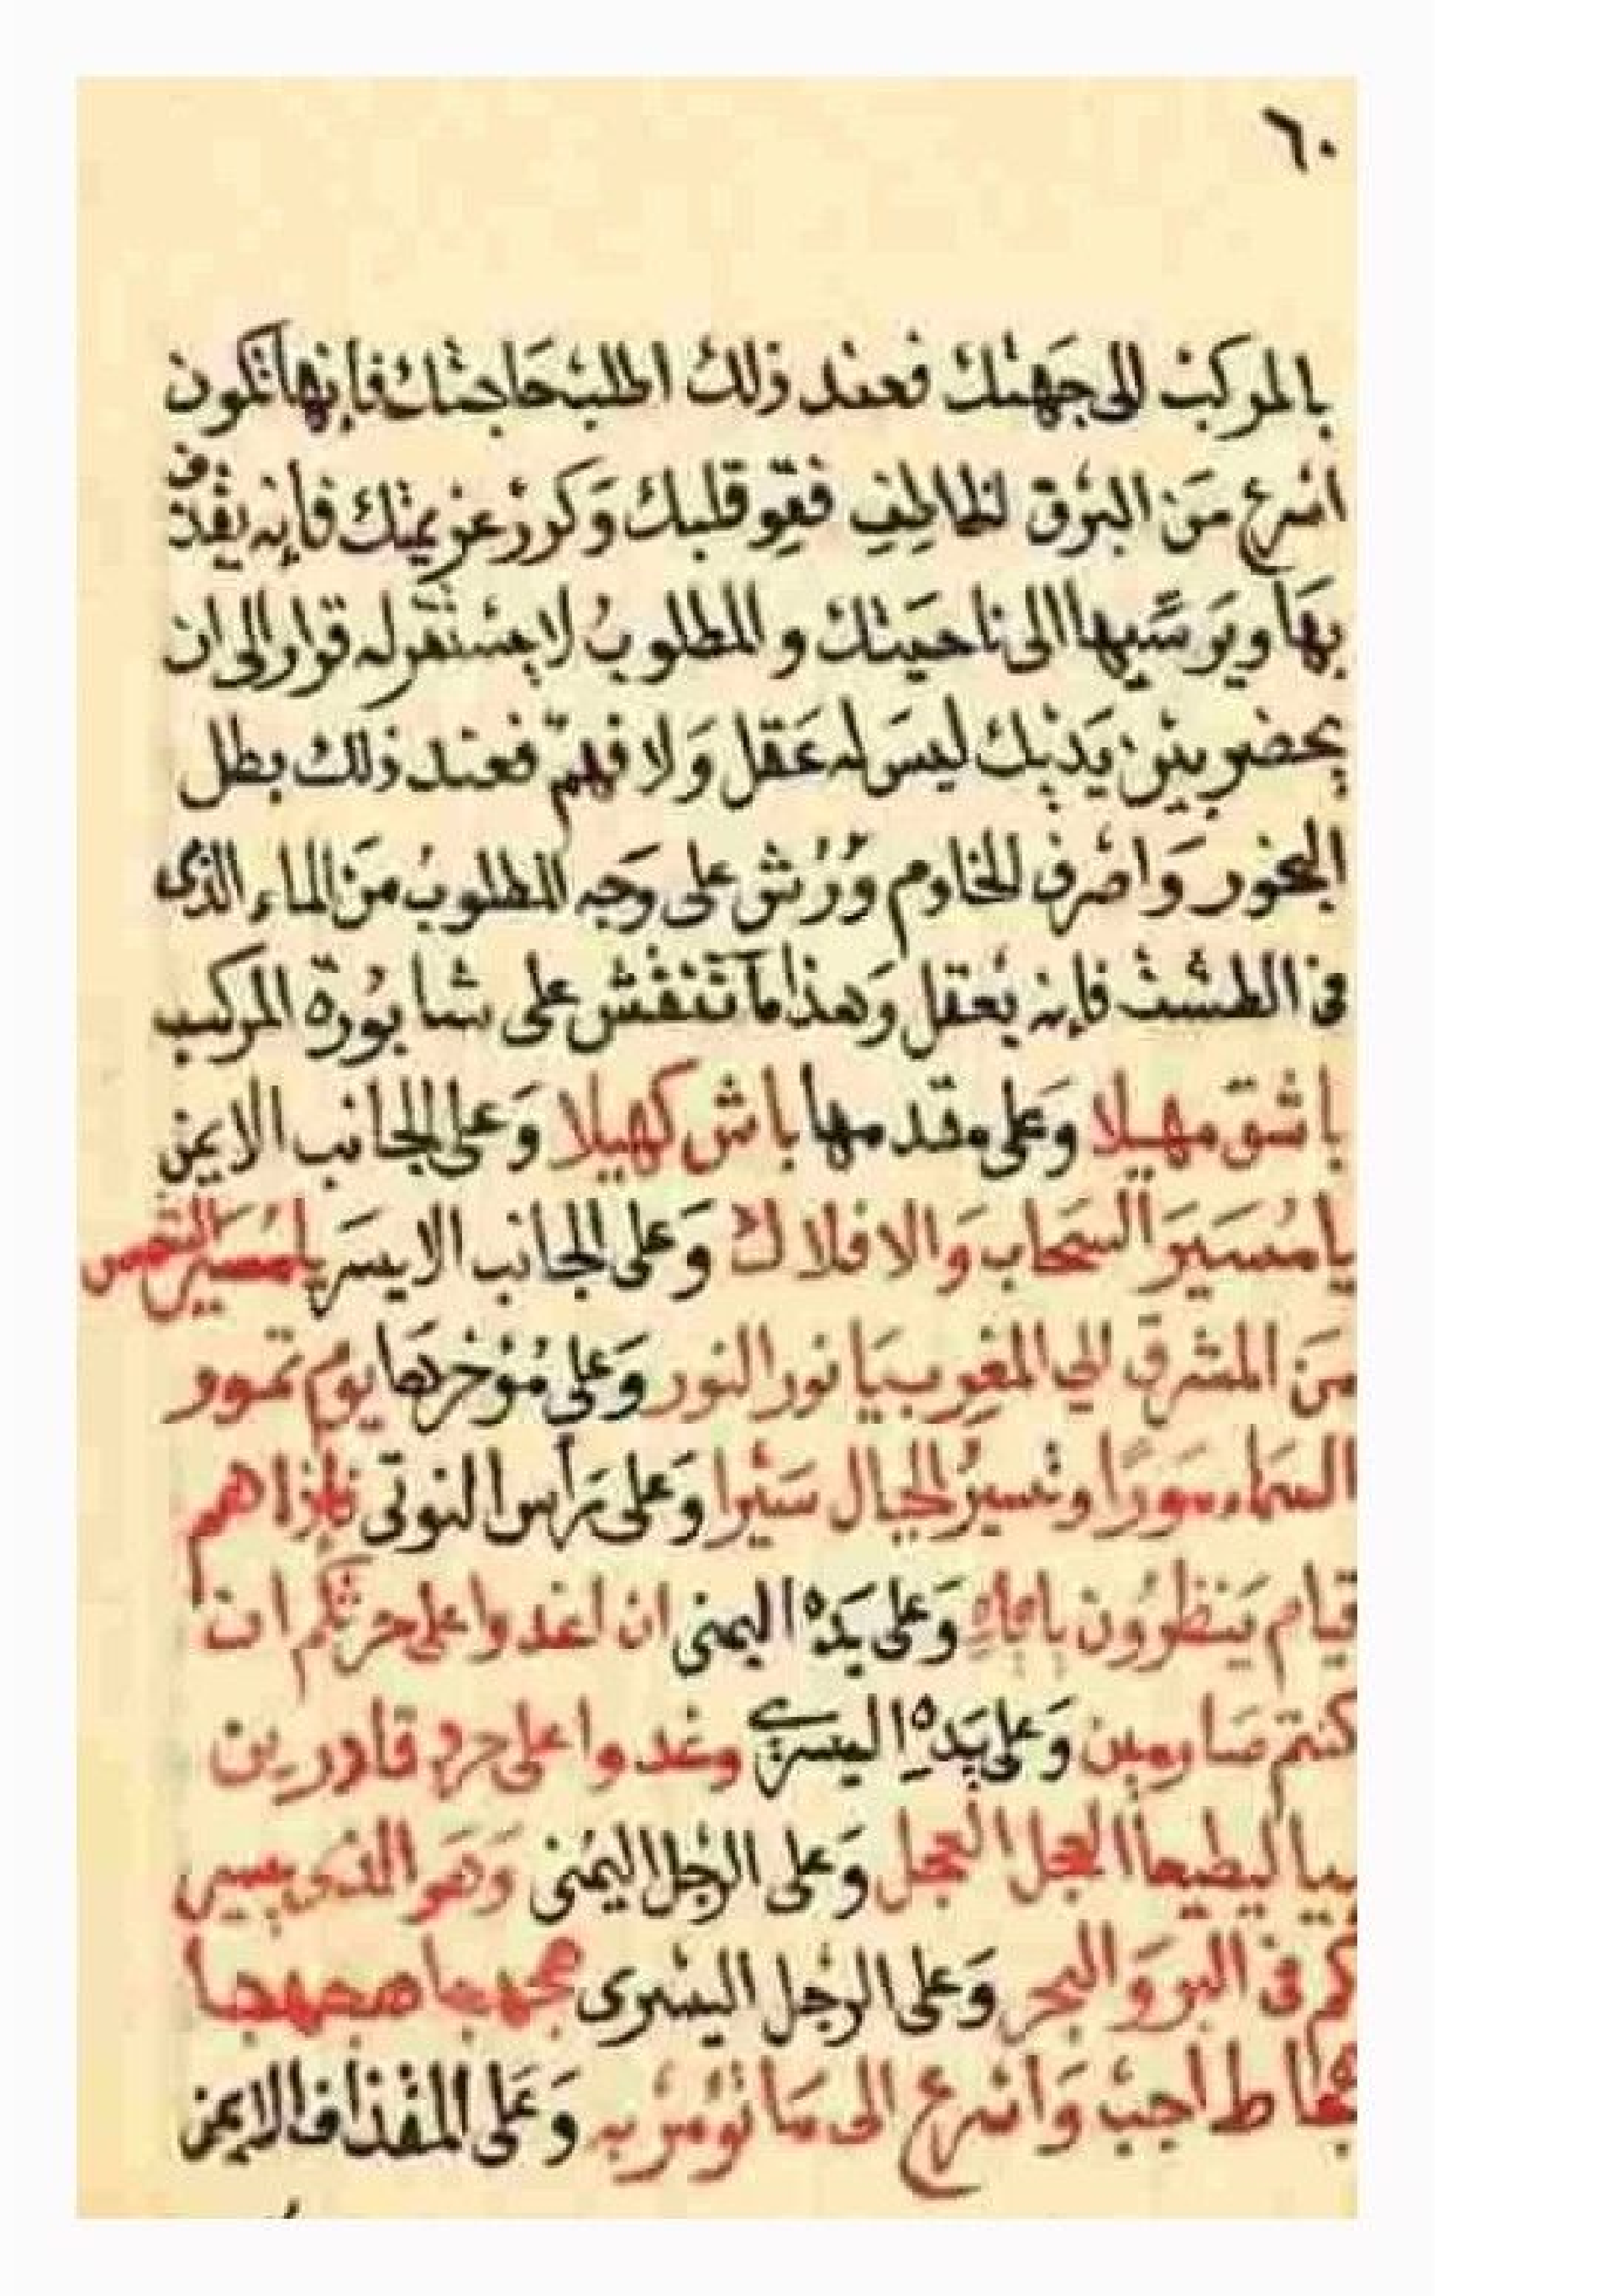 ٦٠
بالمركب الى جهتك فعند ذلك اطلب حاجتك فانها تكون
اسرع من البرق الخاطف فقو قلبك وكرر عزيمتك فإنه يقذف
بها ويرسيها الى ناحيتك والمطلوب لا يستقر له قرار الى ان
يحضر بين يديك ليس له عقل ولا فهم فعند ذلك بطل
البخور واصرف الخادم ورش على وجه المطلوب من الماء الذى
فى الطشت فإنه يعقل وهذا ما تنقش على شابورة المركب
باشق مهيلا وعلى مقدمها باش كهيلا وعلى الجانب الايمن
يا مسير السحاب والافلاك وعلى الجانب الايسر يا مسير الشمس
من المشرق الي المغرب يا نور النور وعلى مؤخرها يوم تمور
السماء مورا وتسير الجبال سيرا وعلى رأس النوتى فإذا هم
قيام ينظرون وعلى يده اليمنى ان اغدوا على حرثكم ان
كنتم صارمين وعلى يده اليسرى وغدوا على حرد قادرين
العجل العجل وعلى الرجل اليمنى وهو الذى يسير
كم فى البر والبحر وعلى الرجل اليسرى
اجب واسرع الى ما تؤمر به وعلى المقذاف الايمن